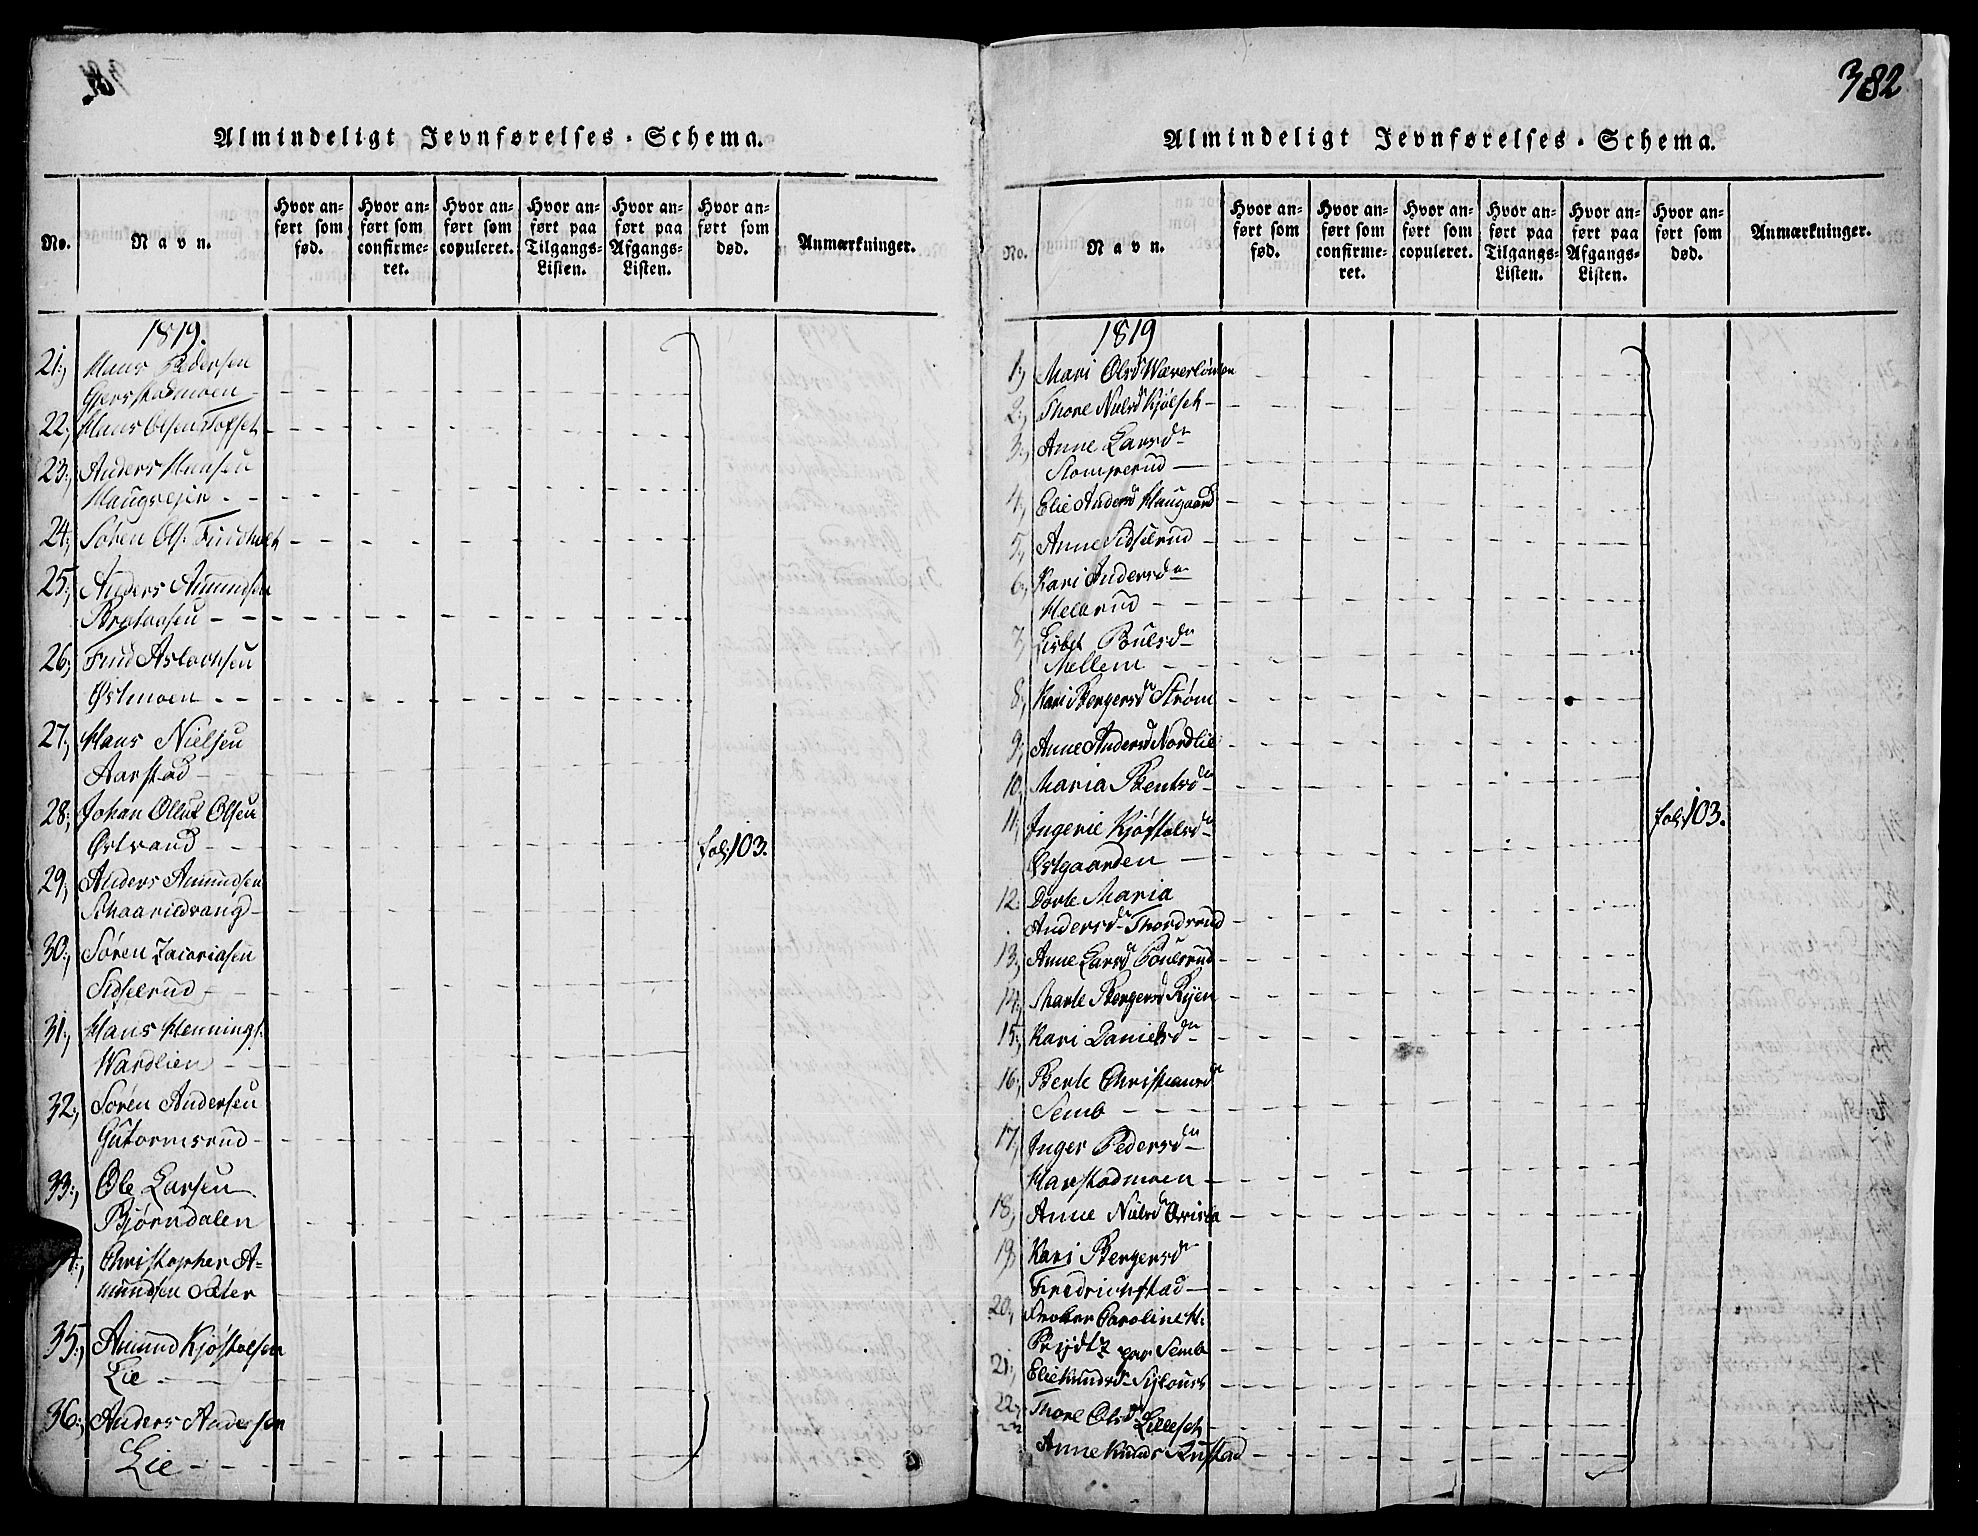 381
Almindeligt Jevnførelses-Schema.
No.
Navn.
Hvor an-
ført som
fød.
Hvor an-
ført som
confirme-
ret.
Hvor an-
ført som
copuleret.
Hvor an-
ført paa
Tilgangs-
Listen.
Hvor an-
ført paa
Afgangs-
Listen.
Hvor an-
ført som
død.
Anmærkninger.
1819.
21, Hans Pedersen
22, Hans Olsen Tofseh
23, Andersen Hansen
Haugsejer
24, Søren Ols.
25, Anders Amundsen
Brataasen
26, Aslachsen
Østmoen
27, Hans Nielsen
Aarstad
28, Johan Olsen
Østvand
fol: 103.
29, Anders Amundsen
30, Søren Zacariasen
Sidselrud
31, Hans Hennings.
Wardlien
32, Søren Andersen
Gutormsrud
33, Ole Larsen
Bjørndalen
Christopher A-
mundsen
35, Amund Kjøstelsen
Lie
36, Anders Andersen
Lie
382
Almindeligt Jevnførelses-Schema.
No.
Navn.
Hvor an-
ført som
fød.
Hvor an-
ført som
confirme-
ret.
Hvor an-
ført som
copuleret.
Hvor an-
ført paa
Tilgangs-
Listen.
Hvor an-
ført paa
Afgangs-
Listen.
Hvor an-
ført som
død.
Anmærkninger.
1819
1, Mari Olsd
2, Thore Nielsd Kjølseh
3, Anne Larsdr
Stomperud
4, Elie Andersd Haugaard
5, Anne Sidselrud
6, Kari Andersdr
Hellerud
7, Lisbet Poulsdr
Mellem
8, Kari Bergersd Strøm
9, Anne Andersd Nordlie
10, Maria Bentsdr
11, Ingerie Kjøstelsdr
Østgaarden
fol: 103.
12, Dorte Maria
Andersdr Thordsrud
13, Anne Larsd Poulsrud
14, Marte Bergersd Ryen
15, Kari Danielsdr
16, Berte Christiansdr
Semb
17, Inger Pedersdr
Harstadmoen
18, Anne Nielsd
19, Kari Bergersdr
Fredrichstad
20, Caroline H.
Brydtz paa Semb
21, Elie Knudsdr
22, Thore Olsdr Lilleseh
Anne Knuds Rustad